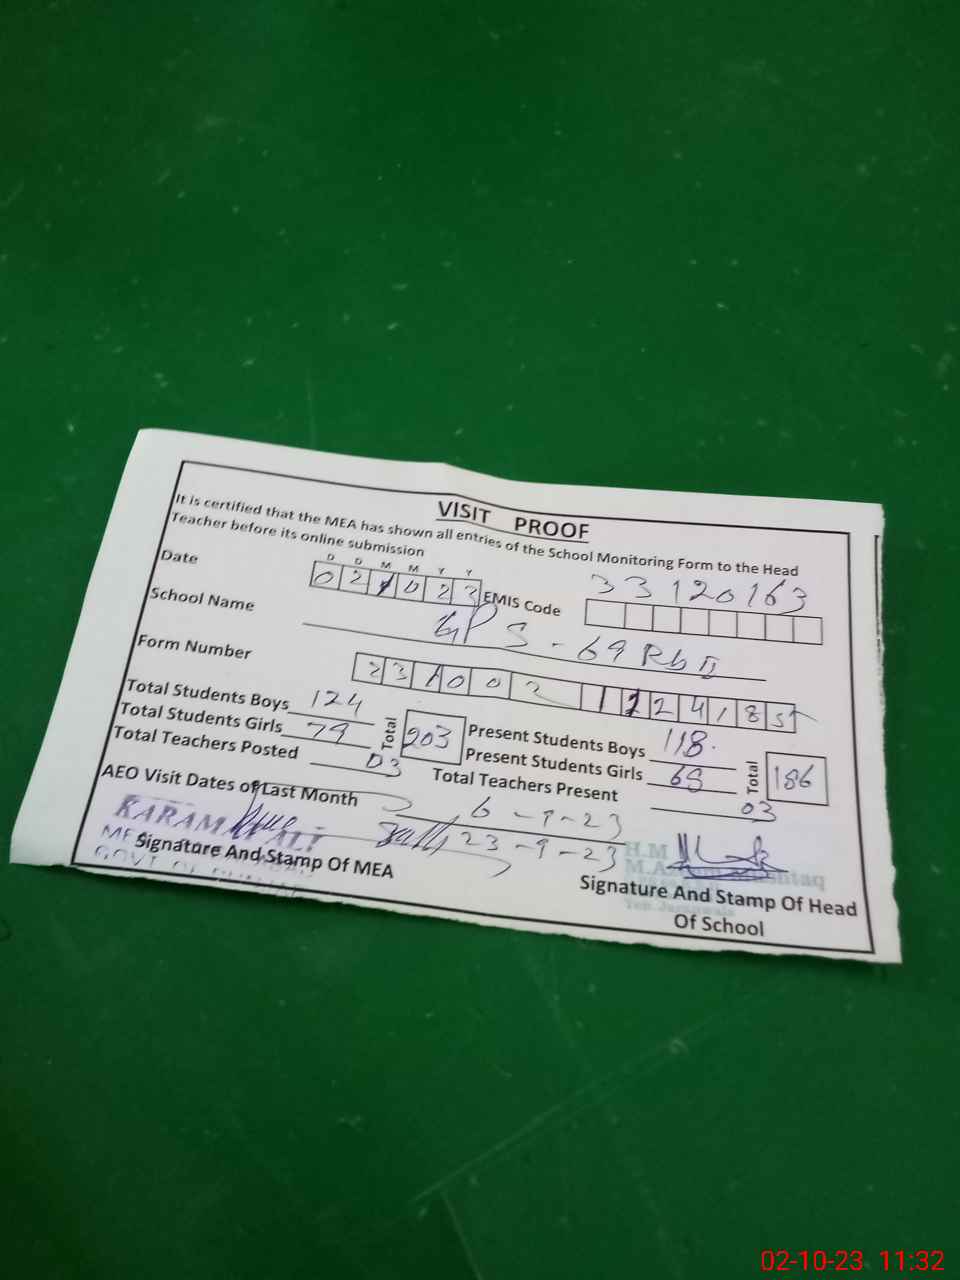 VISIT PROOF
It is certified that the MEA has shown all entries of the School Monitoring Form to the Head
Teacher before its online submission
D D M M Y Y
Date 021023 EMIS Code 33120163
School Name GPS - 69 Rb II
Form Number 2310002 112418
Total Students Boys 124 Present Students Boys 118
Total Students Girls 79 Total 203 Present Students Girls 68 Total 186
Total Teachers Posted 03 Total Teachers Present 03
AEO Visit Dates of Last Month 6-9-23
23-9-23
KARAM ALI
Signature And Stamp Of MEA
H.M
Signature And Stamp Of Head
Of School
02-10-23 11:32